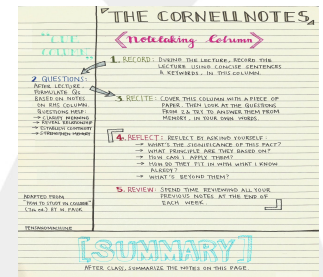 THE CORNELL NOTES
"CUE COLUMN"
Notetaking Column
1. RECORD: DURING THE LECTURE, RECORD THE
LECTURE USING CONCISE SENTENCES
& KEYWORDS, IN THIS COLUMN.
2. QUESTIONS:
AFTER LECTURE,
FORMULATE Qs
BASED ON NOTES
ON RHS COLUMN.
QUESTIONS HELP:
→ CLARIFY MEANING
→ REVEAL RELATIONSHIP
→ ESTABLISH CONTINUITY
→ STRENGTHEN MEMORY
3. RECITE: COVER THIS COLUMN WITH A PIECE OF
PAPER. THEN LOOK AT THE QUESTIONS
FROM 2 & TRY TO ANSWER THEM FROM
MEMORY, IN YOUR OWN WORDS.
4. REFLECT: REFLECT BY ASKING YOURSELF:
→ WHAT'S THE SIGNIFICANCE OF THIS FACT?
→ WHAT PRINCIPLE ARE THEY BASED ON?
→ HOW CAN I APPLY THEM?
→ HOW DO THEY FIT IN WITH WHAT I KNOW
ALREDY?
→ WHAT'S BEYOND THEM?
5. REVIEW: SPEND TIME REVIEWING ALL YOUR
PREVIOUS NOTES AT THE END OF
EACH WEEK.
ADAPTED FROM
"HOW TO STUDY IN COLLEGE"
BY W. PAUK
PENTANOMACHINE
[SUMMARY]
AFTER CLASS, SUMMARIZE THE NOTES ON THIS PAGE.